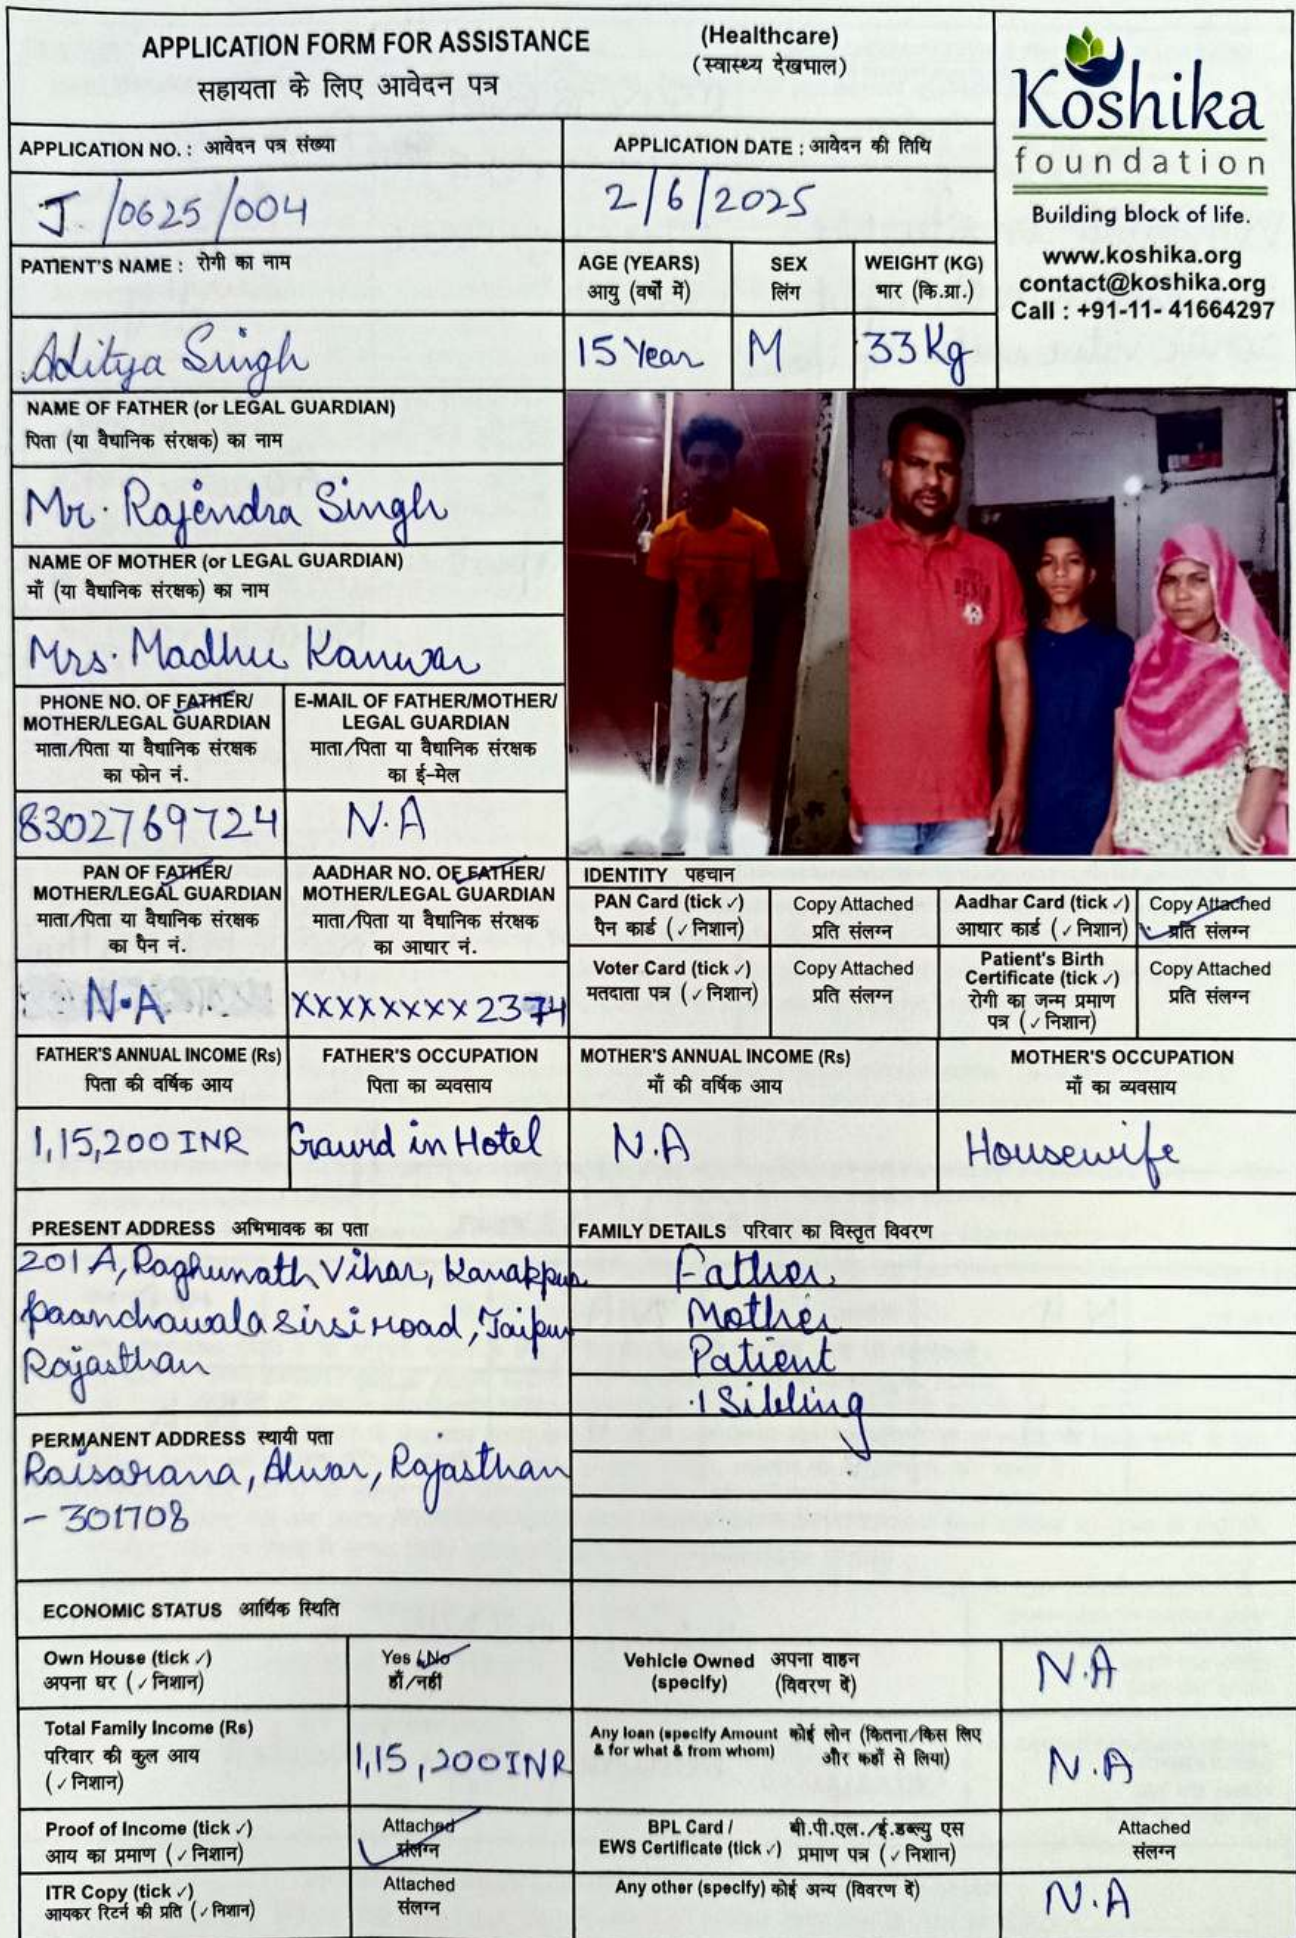 APPLICATION FORM FOR ASSISTANCE (Healthcare)
सहायता के लिए आवेदन पत्र (स्वास्थ्य देखभाल)
Koshika
foundation
Building block of life.
www.koshika.org
contact@koshika.org
Call : +91-11- 41664297
APPLICATION NO. : आवेदन पत्र संख्या
J/0625/004
APPLICATION DATE : आवेदन की तिथि
2/6/2025
PATIENT'S NAME : रोगी का नाम
Aditya Singh
AGE (YEARS)
आयु (वर्षों में)
15 Year
SEX
लिंग
M
WEIGHT (KG)
भार (कि.ग्रा.)
33 Kg
NAME OF FATHER (or LEGAL GUARDIAN)
पिता (या वैधानिक संरक्षक) का नाम
Mr. Rajendra Singh
NAME OF MOTHER (or LEGAL GUARDIAN)
माँ (या वैधानिक संरक्षक) का नाम
Mrs. Madhu Kanwar
PHONE NO. OF FATHER/
MOTHER/LEGAL GUARDIAN
माता/पिता या वैधानिक संरक्षक
का फोन नं.
8302769724
E-MAIL OF FATHER/MOTHER/
LEGAL GUARDIAN
माता/पिता या वैधानिक संरक्षक
का ई-मेल
N.A
PAN OF FATHER/
MOTHER/LEGAL GUARDIAN
माता/पिता या वैधानिक संरक्षक
का पैन नं.
N.A
AADHAR NO. OF FATHER/
MOTHER/LEGAL GUARDIAN
माता/पिता या वैधानिक संरक्षक
का आधार नं.
XXXXXXXX2374
IDENTITY पहचान
PAN Card (tick ✓)
पैन कार्ड (✓ निशान)
Copy Attached
प्रति संलग्न
Aadhar Card (tick ✓)
आधार कार्ड (✓ निशान)
Copy Attached
प्रति संलग्न
Voter Card (tick ✓)
मतदाता पत्र (✓ निशान)
Copy Attached
प्रति संलग्न
Patient's Birth
Certificate (tick ✓)
रोगी का जन्म प्रमाण
पत्र (✓ निशान)
Copy Attached
प्रति संलग्न
FATHER'S ANNUAL INCOME (Rs)
पिता की वर्षिक आय
1,15,200 INR
FATHER'S OCCUPATION
पिता का व्यवसाय
Gaurd in Hotel
MOTHER'S ANNUAL INCOME (Rs)
माँ की वर्षिक आय
N.A
MOTHER'S OCCUPATION
माँ का व्यवसाय
Housewife
PRESENT ADDRESS अभिभावक का पता
201 A, Raghunath Vihar, Kanakpur
Paanchawala Sirsi road, Jaipur
Rajasthan
PERMANENT ADDRESS स्थायी पता
Raisarana, Alwar, Rajasthan
- 301708
FAMILY DETAILS परिवार का विस्तृत विवरण
Father
Mother
Patient
1 Sibling
ECONOMIC STATUS आर्थिक स्थिति
Own House (tick ✓)
अपना घर (✓ निशान)
Yes / No
हाँ/नहीं
Vehicle Owned अपना वाहन
(specify) (विवरण दें)
N.A
Total Family Income (Rs)
परिवार की कुल आय
(✓ निशान)
1,15,200 INR
Any loan (specify Amount कोई लोन (कितना/किस लिए
& for what & from whom) और कहाँ से लिया)
N.A
Proof of Income (tick ✓)
आय का प्रमाण (✓ निशान)
Attached
संलग्न
BPL Card / बी.पी.एल./ई.डब्ल्यु एस
EWS Certificate (tick ✓) प्रमाण पत्र (✓ निशान)
Attached
संलग्न
ITR Copy (tick ✓)
आयकर रिटर्न की प्रति (✓ निशान)
Attached
संलग्न
Any other (specify) कोई अन्य (विवरण दें)
N.A